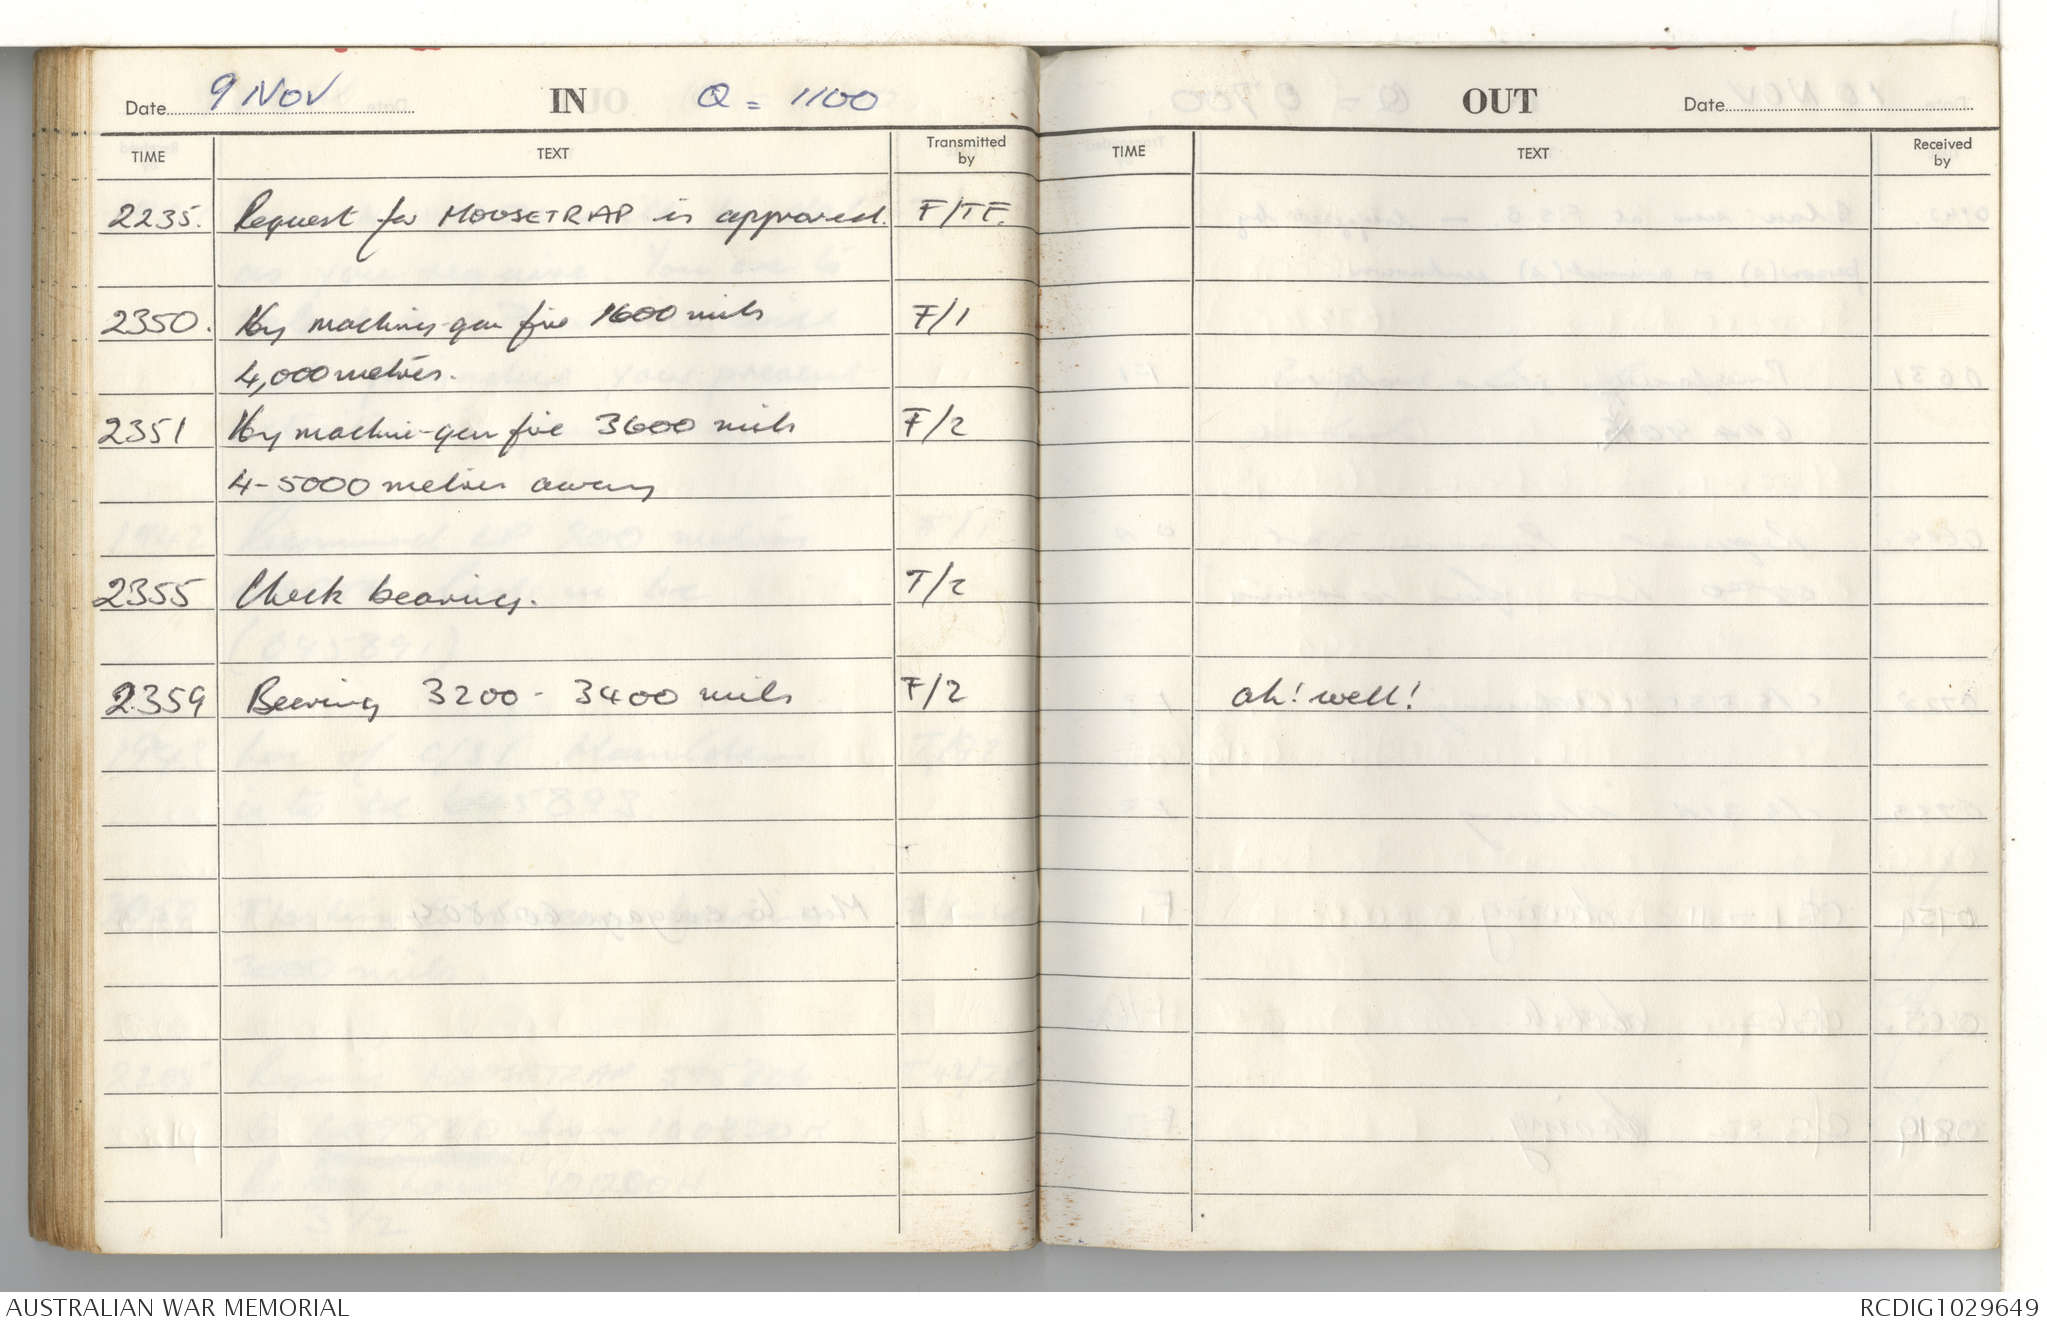 Date 9 NOV IN Q = 1100
TIME TEXT Transmitted by
2235. Request for MOUSETRAP is approved. F/TF.
2350. Hy machine-gun fire 1600 mils F/1
4,000 metres.
2351 Hy machine-gun fire 3600 mils F/2
4-5000 metres away
2355 Check bearing. T/2
2359 Bearing 3200 - 3400 mils F/2
OUT Date
TIME TEXT Received by
ah! well!
AUSTRALIAN WAR MEMORIAL
RCDIG1029649